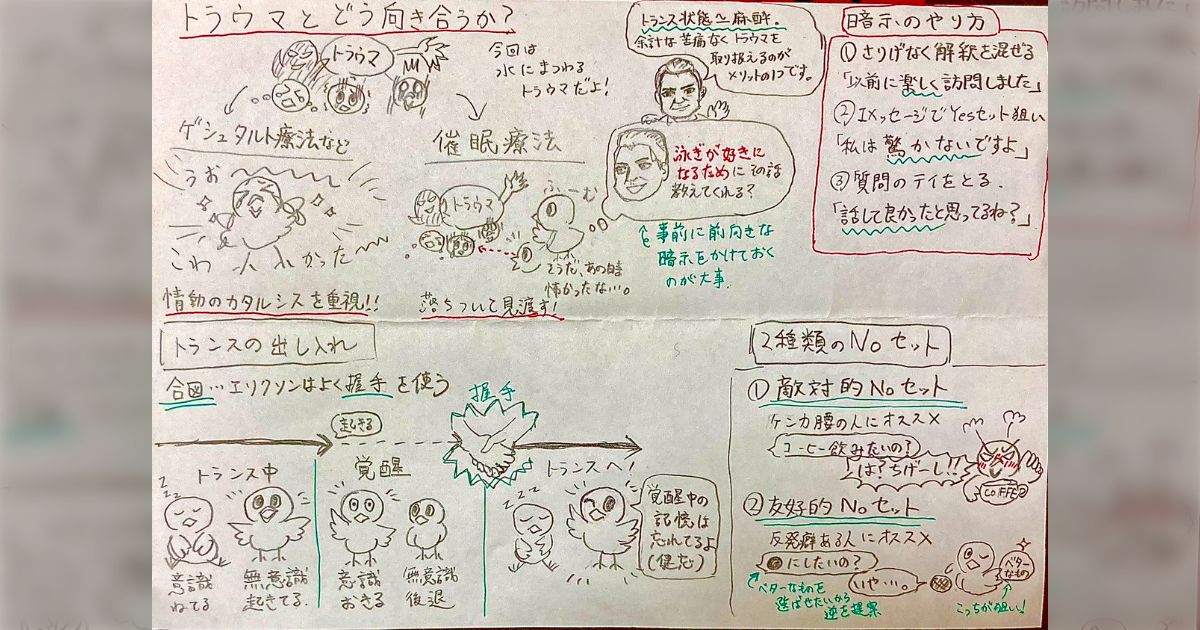 トラウマとどう向き合うか?
トラウマ
今回は
水にまつわる
トラウマだよ!
ゲシュタルト療法など
うお
こわかった
情動のカタルシスを重視!!
催眠療法
トラウマ
ふーむ
そうだ、あの時
怖かったな…。
落ちついて見渡す!
トランス状態≃麻酔。
余計な苦痛なくトラウマを
取り扱えるのが
メリットの1つです。
泳ぎが好きに
なるためにその話
教えてくれる?
事前に前向きな
暗示をかけておく
のが大事。
暗示のやり方
①さりげなく解釈を混ぜる
「以前に楽しく訪問しました」
②IメッセージでYesセット狙い
「私は驚かないですよ」
③質問のテイをとる.
「話して良かったと思ってるね?」
トランスの出し入れ
合図…エリクソンはよく握手を使う
起きる
握手
トランス中
覚醒
トランスへ!
zzz
zzz
意識
ねてる
無意識
起きてる.
意識
おきる
無意識
後退
覚醒中の
記憶は
忘れてるよ
(健忘)
2種類のNoセット
①敵対的Noセット
ケンカ腰の人にオススメ
コーヒー飲みたいの?
は?ちげーし!!
COFFEE
②友好的Noセット
反発癖ある人にオススメ
にしたいの?
いや…。
ベターなものを
選ばせたいから
逆を提案
ベター
なもの
こっちが狙い!